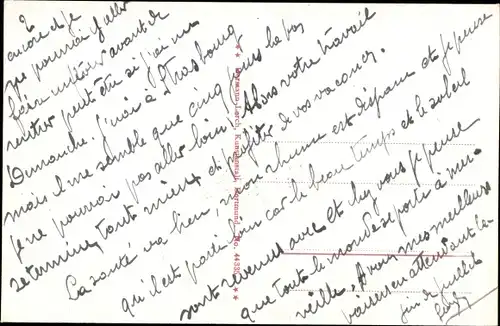 2
encore et je
ne pourrai aller
faire un tour avant de
rentrer peut être si j'ai un
Dimanche j'irai à Strasbourg
mais il me semble que cinq jours là bas
je ne pourrai pas aller loin. Alors votre travail
se termine, tant mieux et profitez de vos vacances.
La santé va bien, mon rhume est disparu et je pense
qu'il est parti pour car le beau temps et le soleil
sont revenus avec et chez vous je pense
que tout le monde se porte à mer-
veille. A vous mes meilleurs
baisers en attendant la
fin de juillet